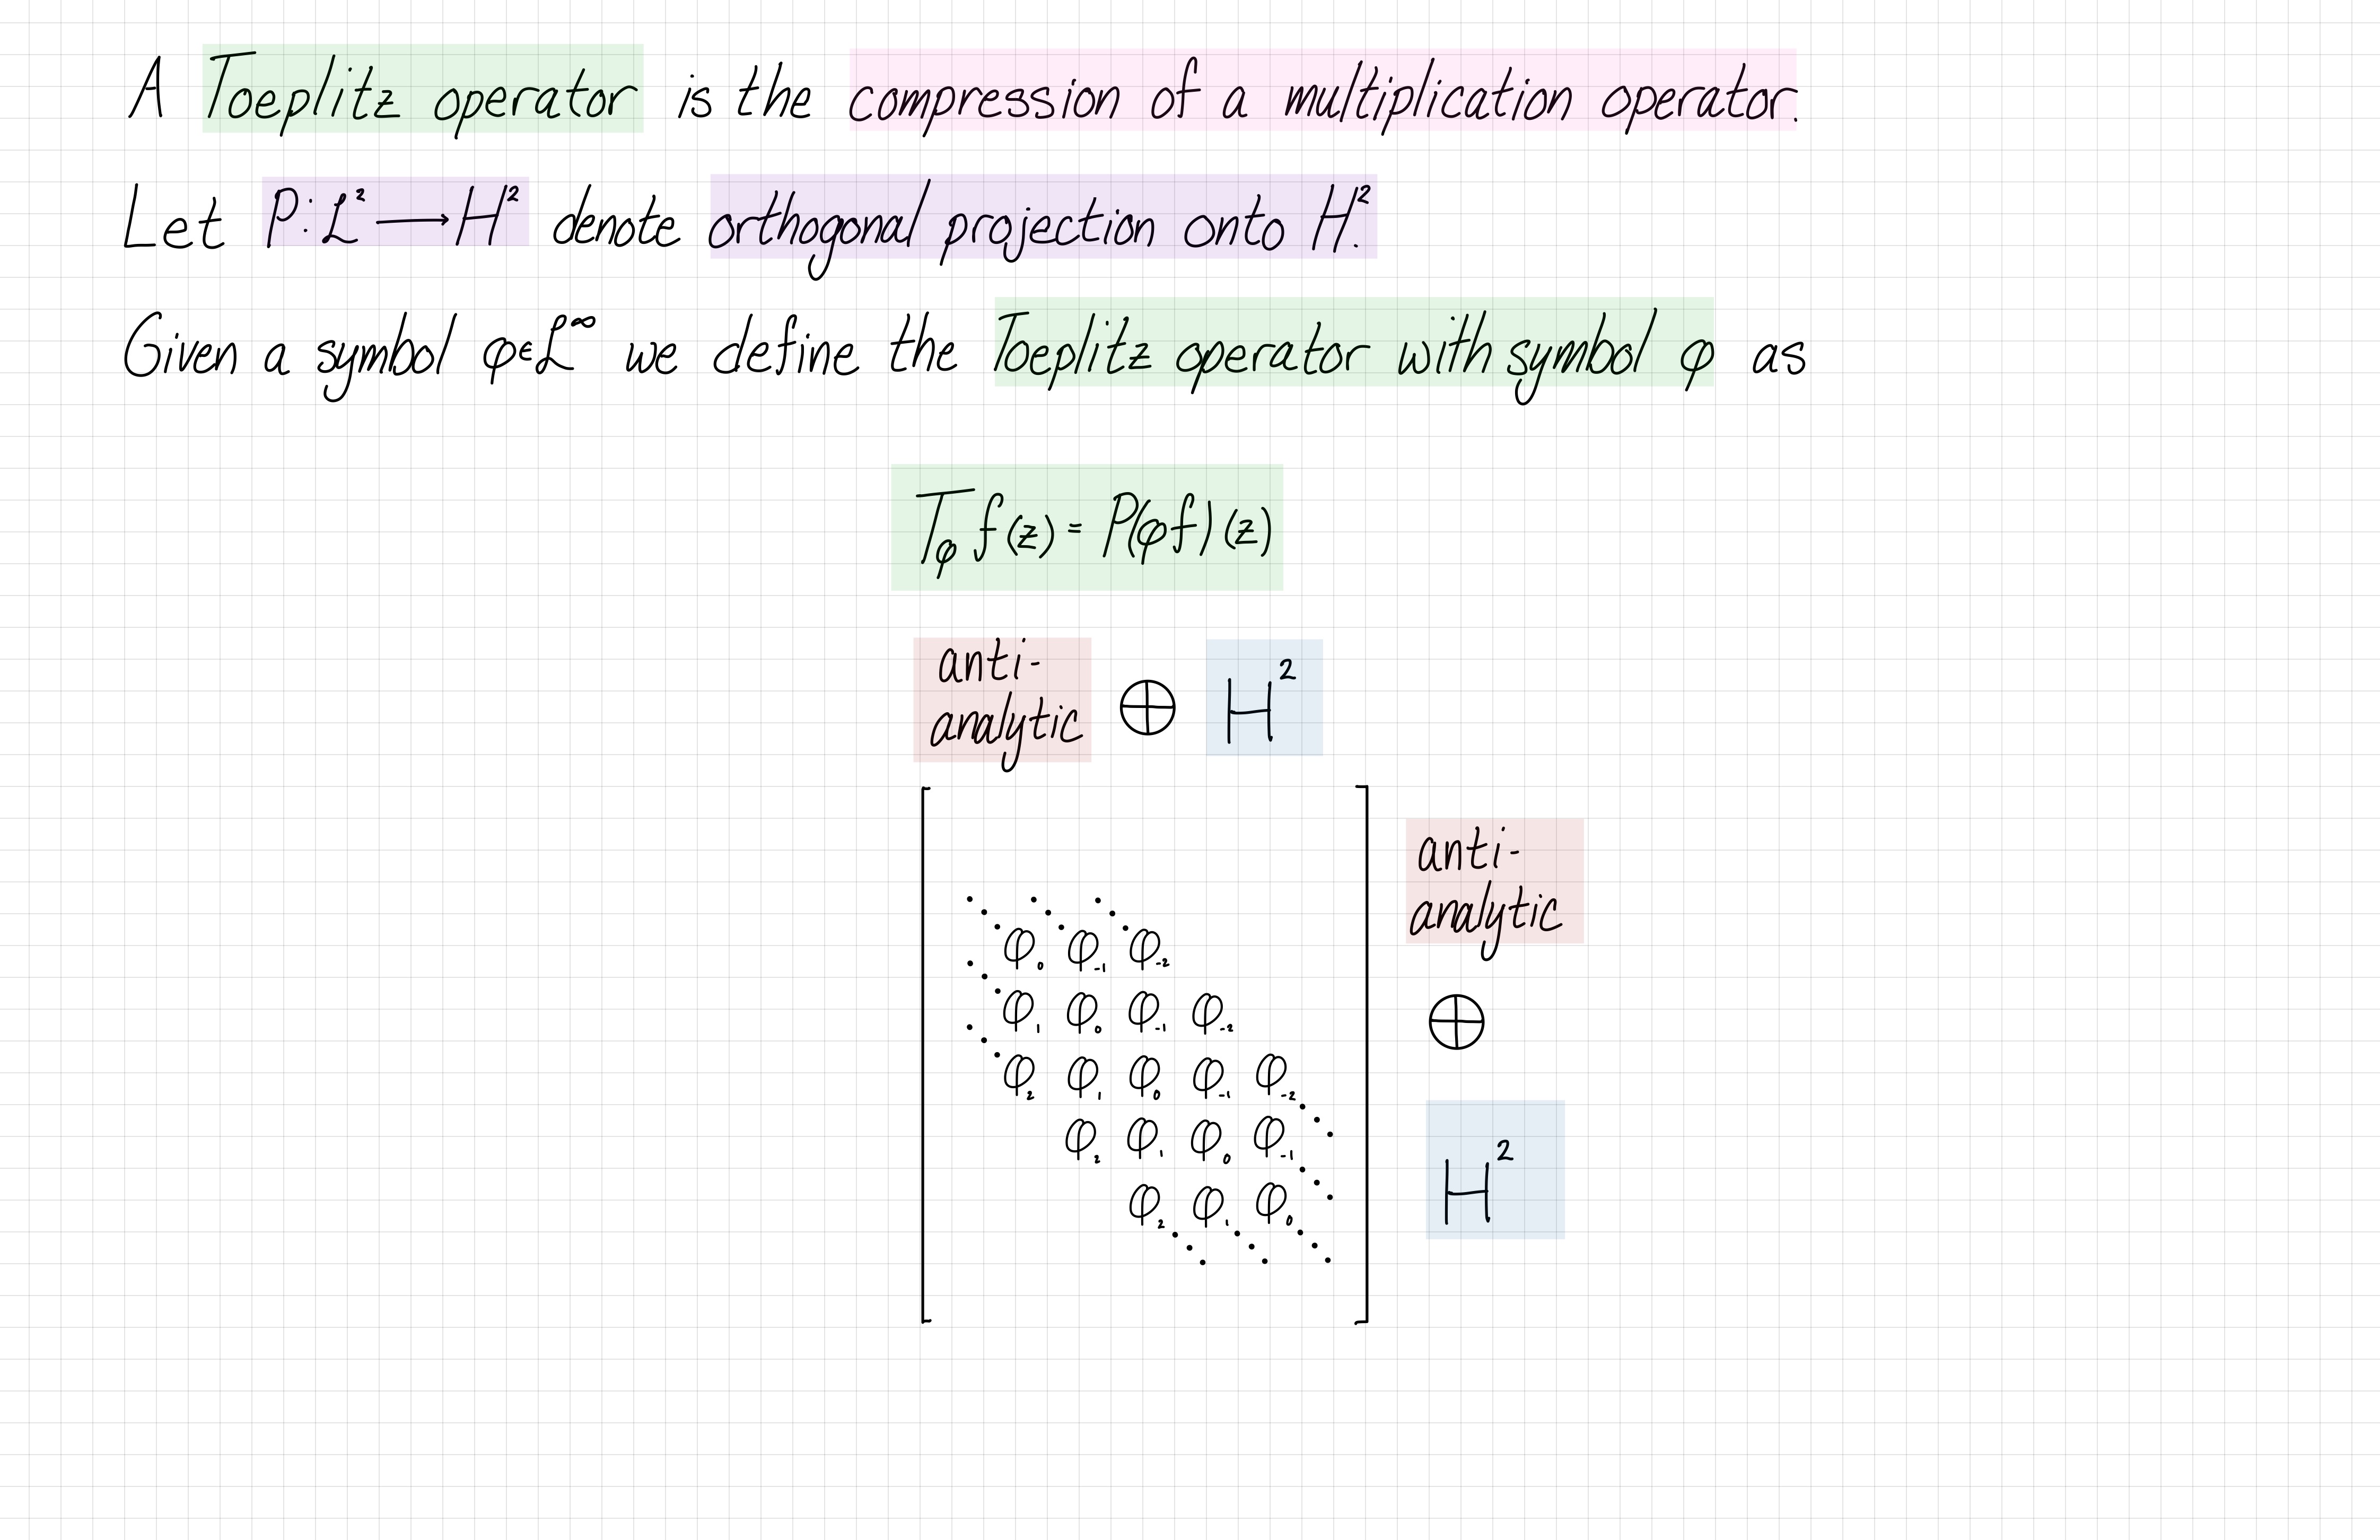 A Toeplitz operator is the compression of a multiplication operator.
Let P: L² ⟶ H² denote orthogonal projection onto H².
Given a symbol φ∈L^∞ we define the Toeplitz operator with symbol φ as
T_φ f(z) = P(φf)(z)
anti-
analytic ⊕ H²
anti-
analytic
φ₀ φ₋₁ φ₋₂
φ₁ φ₀ φ₋₁ φ₋₂
⊕
φ₂ φ₁ φ₀ φ₋₁ φ₋₂
φ₂ φ₁ φ₀ φ₋₁
H²
φ₂ φ₁ φ₀